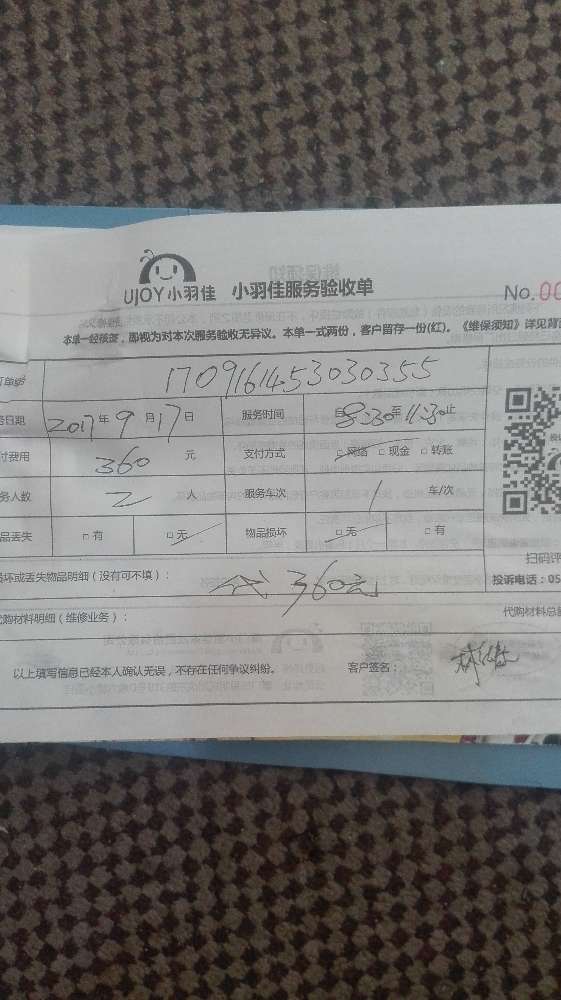 UJOY小羽佳 小羽佳服务验收单 No.00
本单一经核签，即视为对本次服务验收无异议。本单一式两份，客户留存一份(红)。《维保须知》详见背面
订单号 170916145303035​5
务日期 2017年9月17日 服务时间 自8:30至11:30止
付费用 360元 支付方式 □网络 □现金 □转账
务人数 2人 服务车次 1车/次
品丢失 □有 □无 物品损坏 □无 □有
扫码评
损坏或丢失物品明细（没有可不填）： 360元 投诉电话：05
代购材料明细（维修业务）： 代购材料总额
以上填写信息已经本人确认无误，不存在任何争议纠纷。 客户签名：